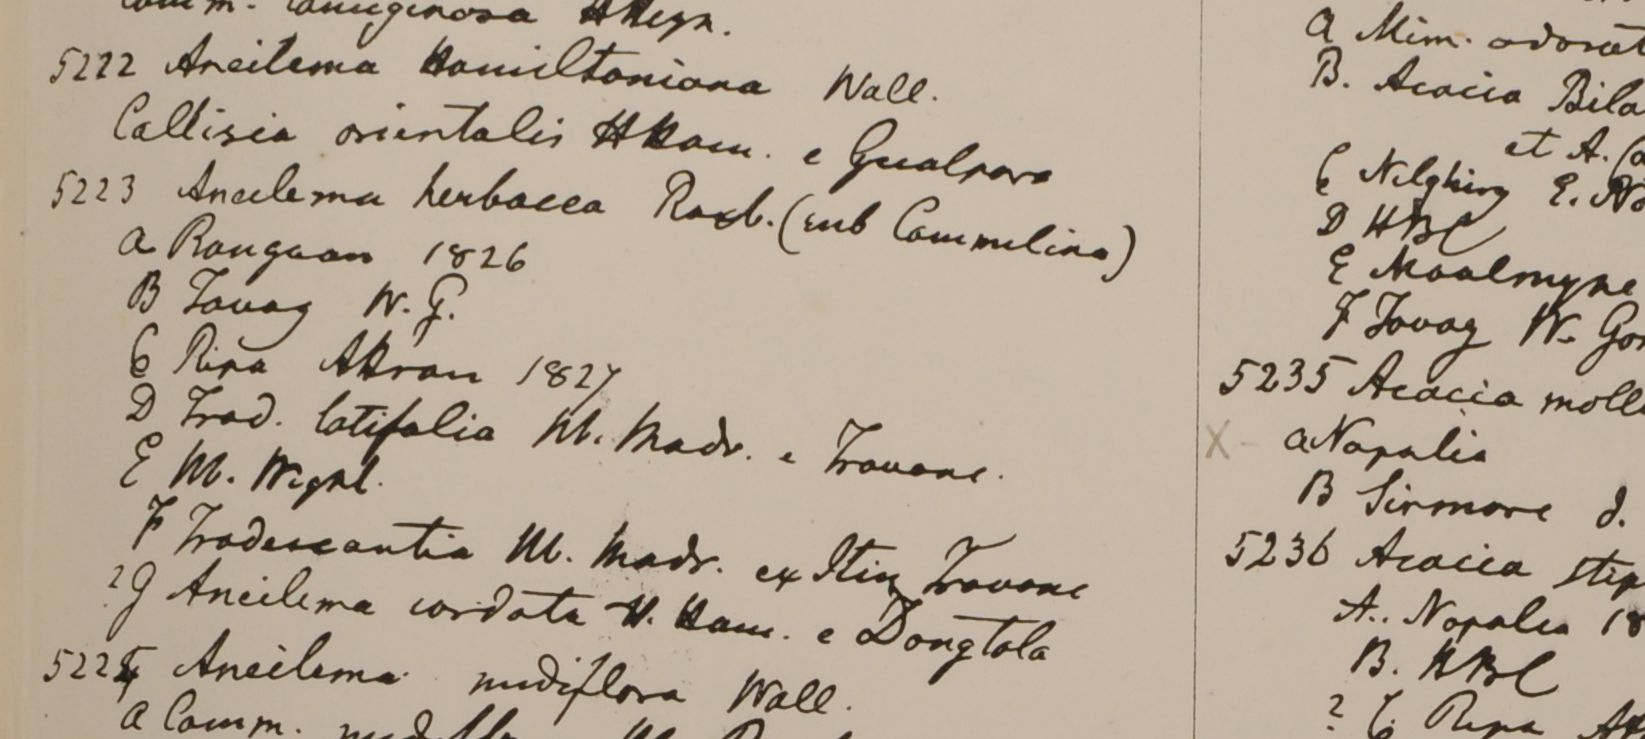 Comm. lanuginosa HHeyn.
5222 Aneilema Hamiltoniana Wall.
Callisia orientalis HHam. e Gualpara
5223 Aneilema herbacea Roxb. (sub Commelina)
a Rangoon 1826
B Tavoy W. G.
C Ripa Attran 1827
D Trad. latifolia Hb. Madr. e Travanc.
E Hb. Wight.
F Tradescantia Hb. Madr. ex Itin Travanc
?g Aneilema cordata H. Ham. e Dongtola
5224 Aneilema nudiflora Wall.
a Comm.
a Mim. odorat
B. Acacia Bila
et A.
C Nilghiry E. No
D HBC
E Moalmyne
F Tavoy W. Go
5235 Acacia moll
X - a Napalia
B Sirmore d.
5236 Acacia stip
A. Napalia 18
B. HBC
? C. Ripa At